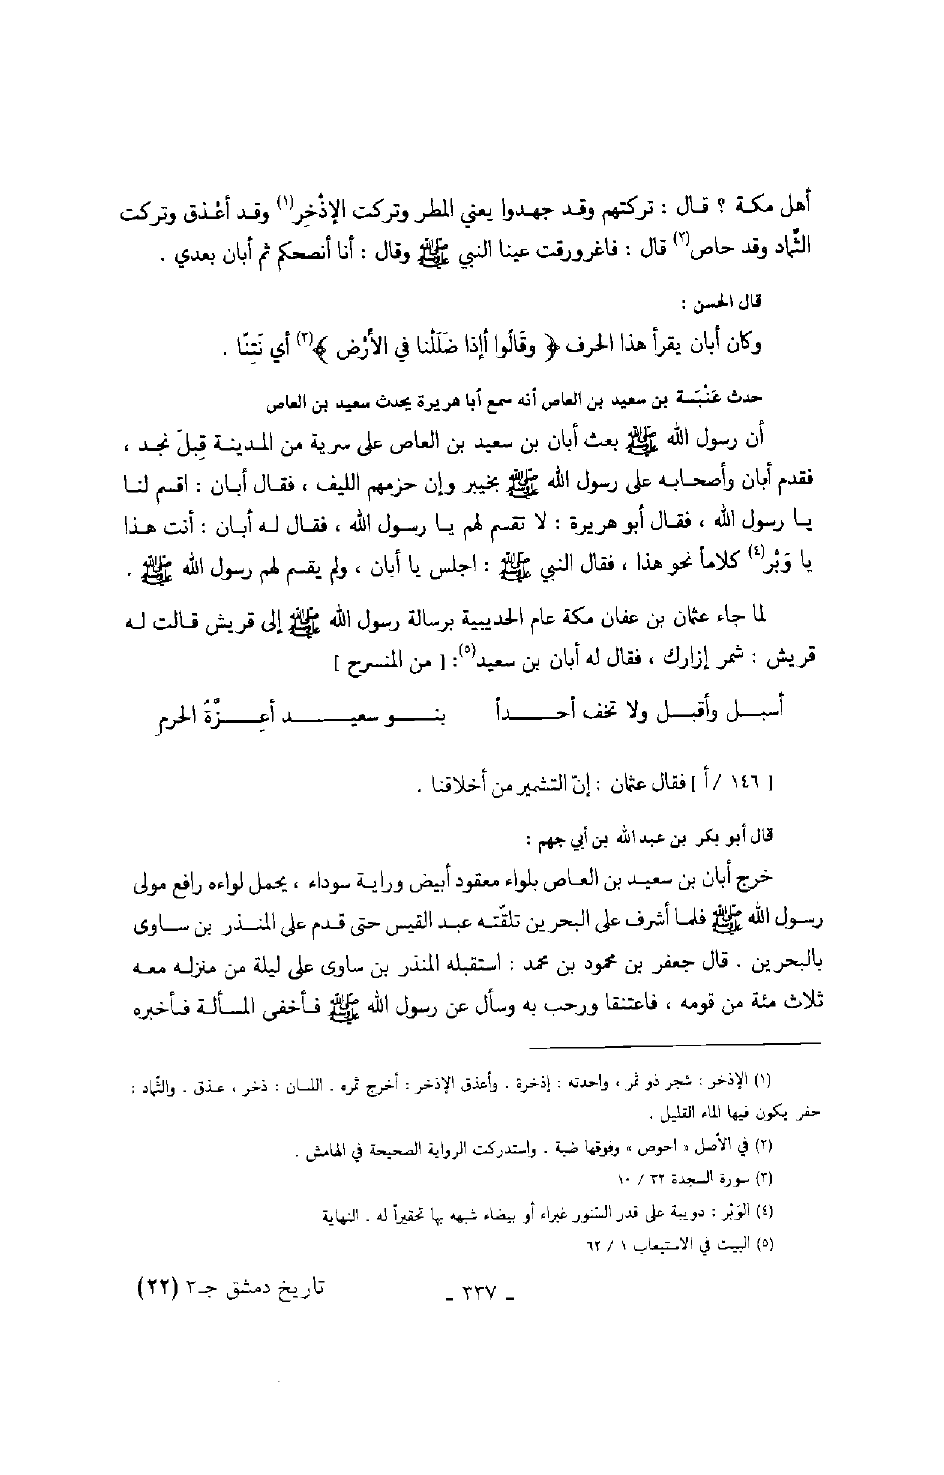 أهل مكة ؟ قال : تركتهم وقد جهدوا يعني المطر وتركت الإذْخِر(١) وقد أعْذق وتركت
الثِّماد وقد حاص(٢) قال : فاغرورقت عينا النبي ﷺ وقال : أنا أنصحكم ثم أبان بعدي .
قال الحسن :
وكان أبان يقرأ هذا الحرف ﴿ وقَالُوا أإذا ضَلَلْنا في الأرْض ﴾(٣) أي نَتِنّا .
حدث عَنْبَسة بن سعيد بن العاص أنه سمع أبا هريرة يحدث سعيد بن العاص
أن رسول الله ﷺ بعث أبان بن سعيد بن العاص على سرية من المدينة قِبلَ نجد ،
فقدم أبان وأصحابه على رسول الله ﷺ بخيبر وإن حزمهم الليف ، فقال أبان : اقسم لنا
يا رسول الله ، فقال أبو هريرة : لا تقسم لهم يا رسول الله ، فقال له أبان : أنت هذا
يا وَبْر(٤) كلاماً نحو هذا ، فقال النبي ﷺ : اجلس يا أبان ، ولم يقسم لهم رسول الله ﷺ .
لما جاء عثمان بن عفان مكة عام الحديبية برسالة رسول الله ﷺ إلى قريش قالت له
قريش : شمر إزارك ، فقال له أبان بن سعيد(٥): [ من المنسرح ]
أسبل وأقبل ولا تخف أحداً بنو سعيد أعِزَّةُ الحرم
[ ١٤٦ /أ ] فقال عثمان : إنّ التشمير من أخلاقنا .
قال أبو بكر بن عبد الله بن أبي جهم :
خرج أبان بن سعيد بن العاص بلواء معقود أبيض وراية سوداء ، يحمل لواءه رافع مولى
رسول الله ﷺ فلما أشرف على البحرين تلقّته عبد القيس حتى قدم على المنذر بن ساوى
بالبحرين . قال جعفر بن محمود بن محمد : استقبله المنذر بن ساوى على ليلة من منزله معه
ثلاث مئة من قومه ، فاعتنقا ورحب به وسأل عن رسول الله ﷺ فأخفى المسألة فأخبره
(١) الإذخر : شجر ذو ثمر ، واحدته : إذخرة . وأعذق الإذخر : أخرج ثمره . اللسان : ذخر ، عذق . والثِّماد :
حفر يكون فيها الماء القليل .
(٢) في الأصل « احوص » وفوقها ضبة . واستدركت الرواية الصحيحة في الهامش .
(٣) سورة السجدة ٣٢ / ١٠
(٤) الوَبْر : دويبة على قدر السّنور غبراء أو بيضاء شبهه بها تحقيراً له . النهاية
(٥) البيت في الاستيعاب ١ / ٦٢
- ٣٣٧ -
تاريخ دمشق جـ٢ (٢٢)